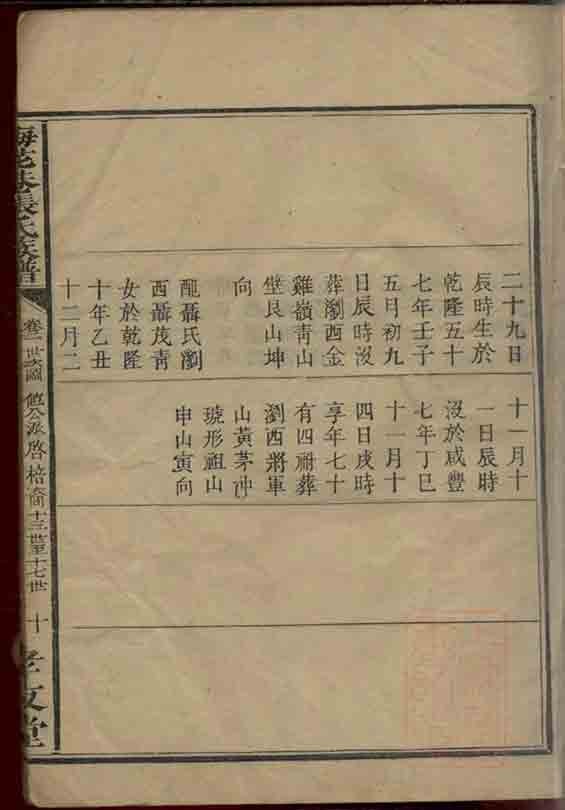 二十九日
辰時生於
乾隆五十
七年壬子
五月初九
日辰時沒
葬瀏西金
雞嶺青山
壁艮山坤
向
配聶氏瀏
西聶茂青
女於乾隆
十年乙丑
十二月二
十一月十
一日辰時
沒於咸豐
七年丁巳
十一月十
四日戌時
享年七十
有四祔葬
瀏西將軍
山黃茅冲
琥形祖山
申山寅向
梅花巷張氏族譜
卷一世次圖
公派啓
十三世至十七世
十
孝友堂